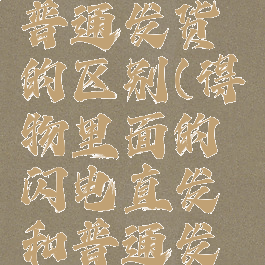 普通发货
的区别(得
物里面的
闪电直发
和普通发